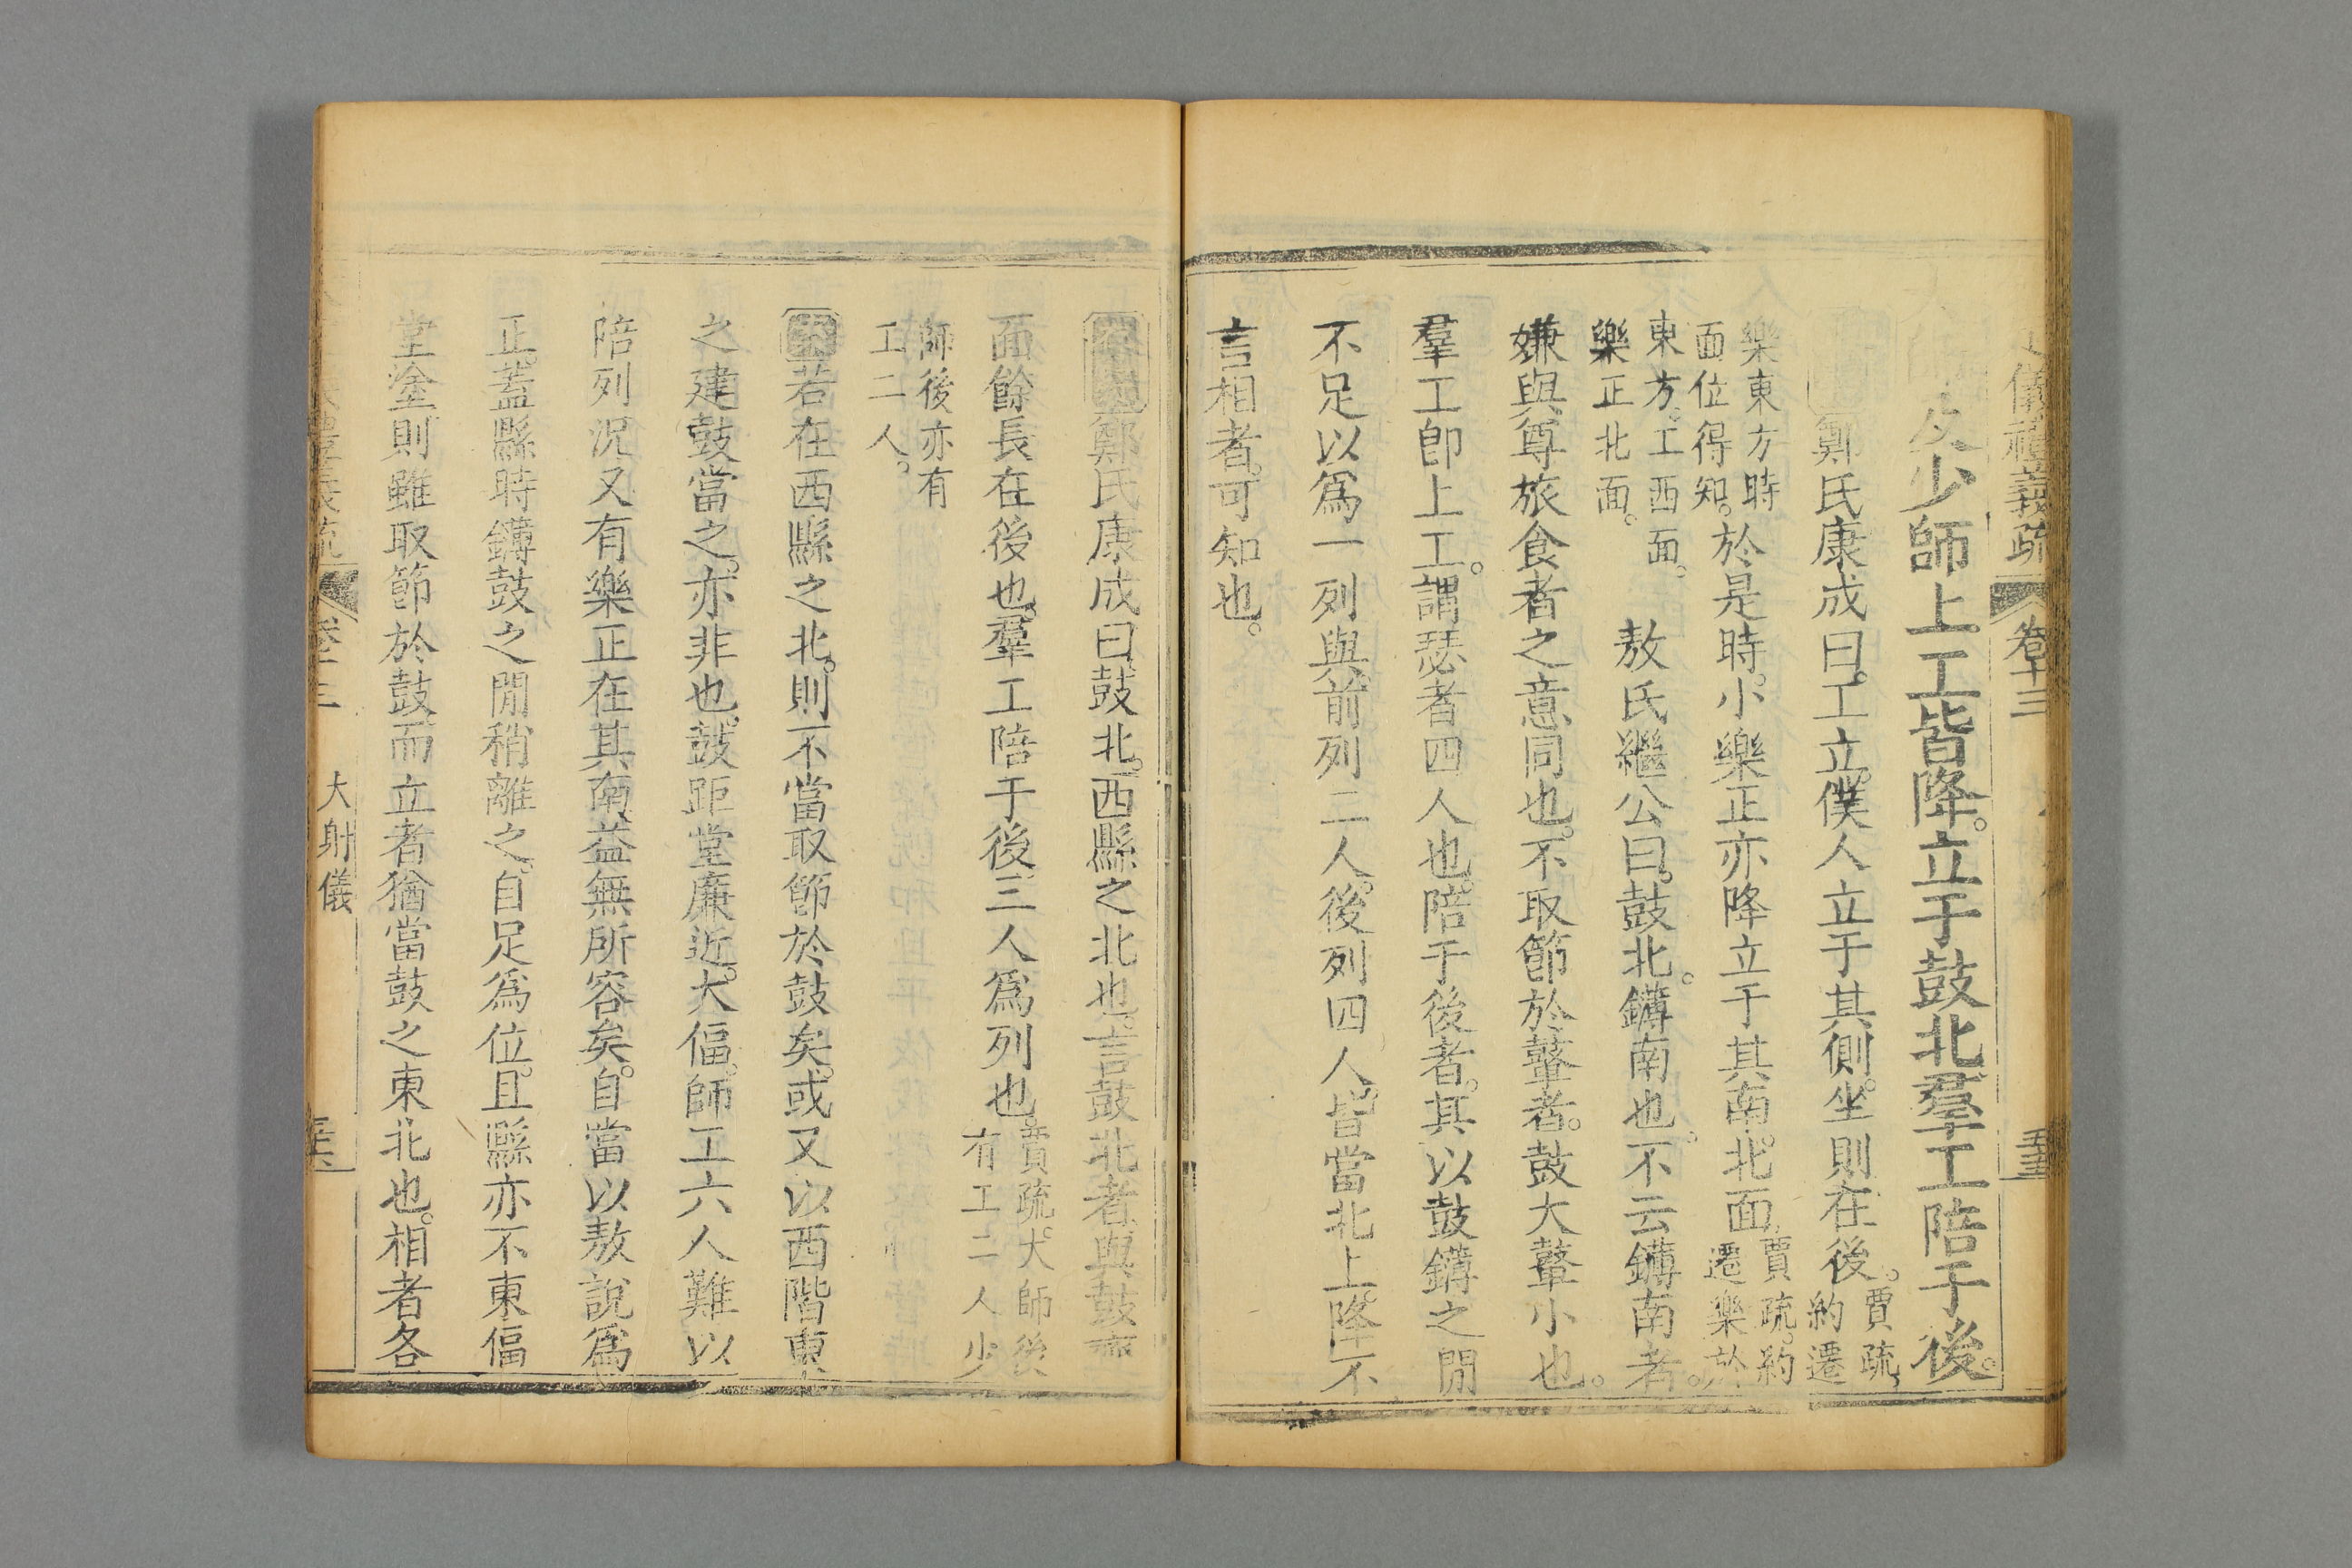 儀禮義疏 卷十三
及少師上工皆降。立于鼓北羣工陪于後。
鄭氏康成曰。工立。僕人立于其側。坐則在後。賈疏。約遷
樂東方時面位得知。於是時。小樂正亦降立于其南。北面。賈疏。約遷樂於
東方。工西面。樂正北面。 敖氏繼公曰。鼓北。鑮南也。不云鑮南者。
嫌與尊旅食者之意同也。不取節於鼙者。鼓大鼙小也。
羣工卽上工。謂瑟者四人也。陪于後者。其以鼓鑮之閒
不足以爲一列與。前列二人。後列四人。皆當北上。降不
言相者。可知也。
鄭氏康成曰鼓北。西縣之北也。言鼓北者與鼓齊
面餘長在後也。羣工陪于後。三人爲列也。賈疏。大師後有工二人少
師後亦有工二人。
若在西縣之北。則不當取節於鼓矣。或又以西階東
之建鼓當之。亦非也。鼓距堂廉近。大偪。師工六人難以
陪列況又有樂正在其南。益無所容矣。自當以敖說爲
正。蓋縣時鑮鼓之閒稍離之。自足爲位。且縣亦不東偪
堂塗則雖取節於鼓而立者猶當鼓之東北也。相者各
大射儀